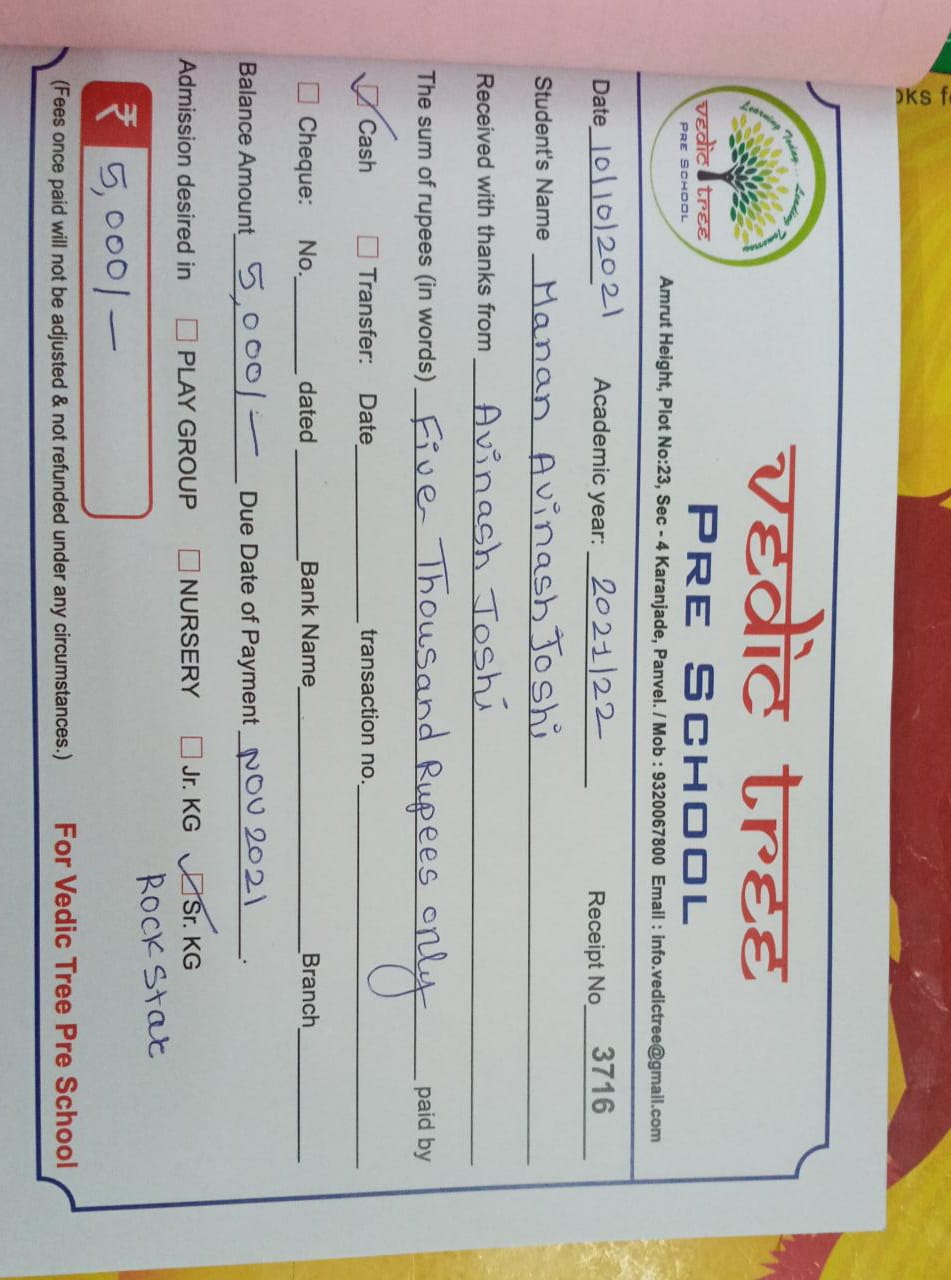 oks f
Learning Today... Leading Tomorrow
vedic tree
PRE SCHOOL
vedic tree
PRE SCHOOL
Amrut Height, Plot No:23, Sec - 4 Karanjade, Panvel. / Mob : 9320067800 Email : info.vedictree@gmail.com
Date 10/10/2021 Academic year: 2021/22 Receipt No 3716
Student's Name Manan Avinash Joshi
Received with thanks from Avinash Joshi
The sum of rupees (in words) Five Thousand Rupees only paid by
Cash Transfer: Date transaction no.
Cheque: No. dated Bank Name Branch
Balance Amount 5,000/- Due Date of Payment NOV 2021.
Admission desired in PLAY GROUP NURSERY Jr. KG Sr. KG
Rockstar
₹ 5,000/-
(Fees once paid will not be adjusted & not refunded under any circumstances.) For Vedic Tree Pre School